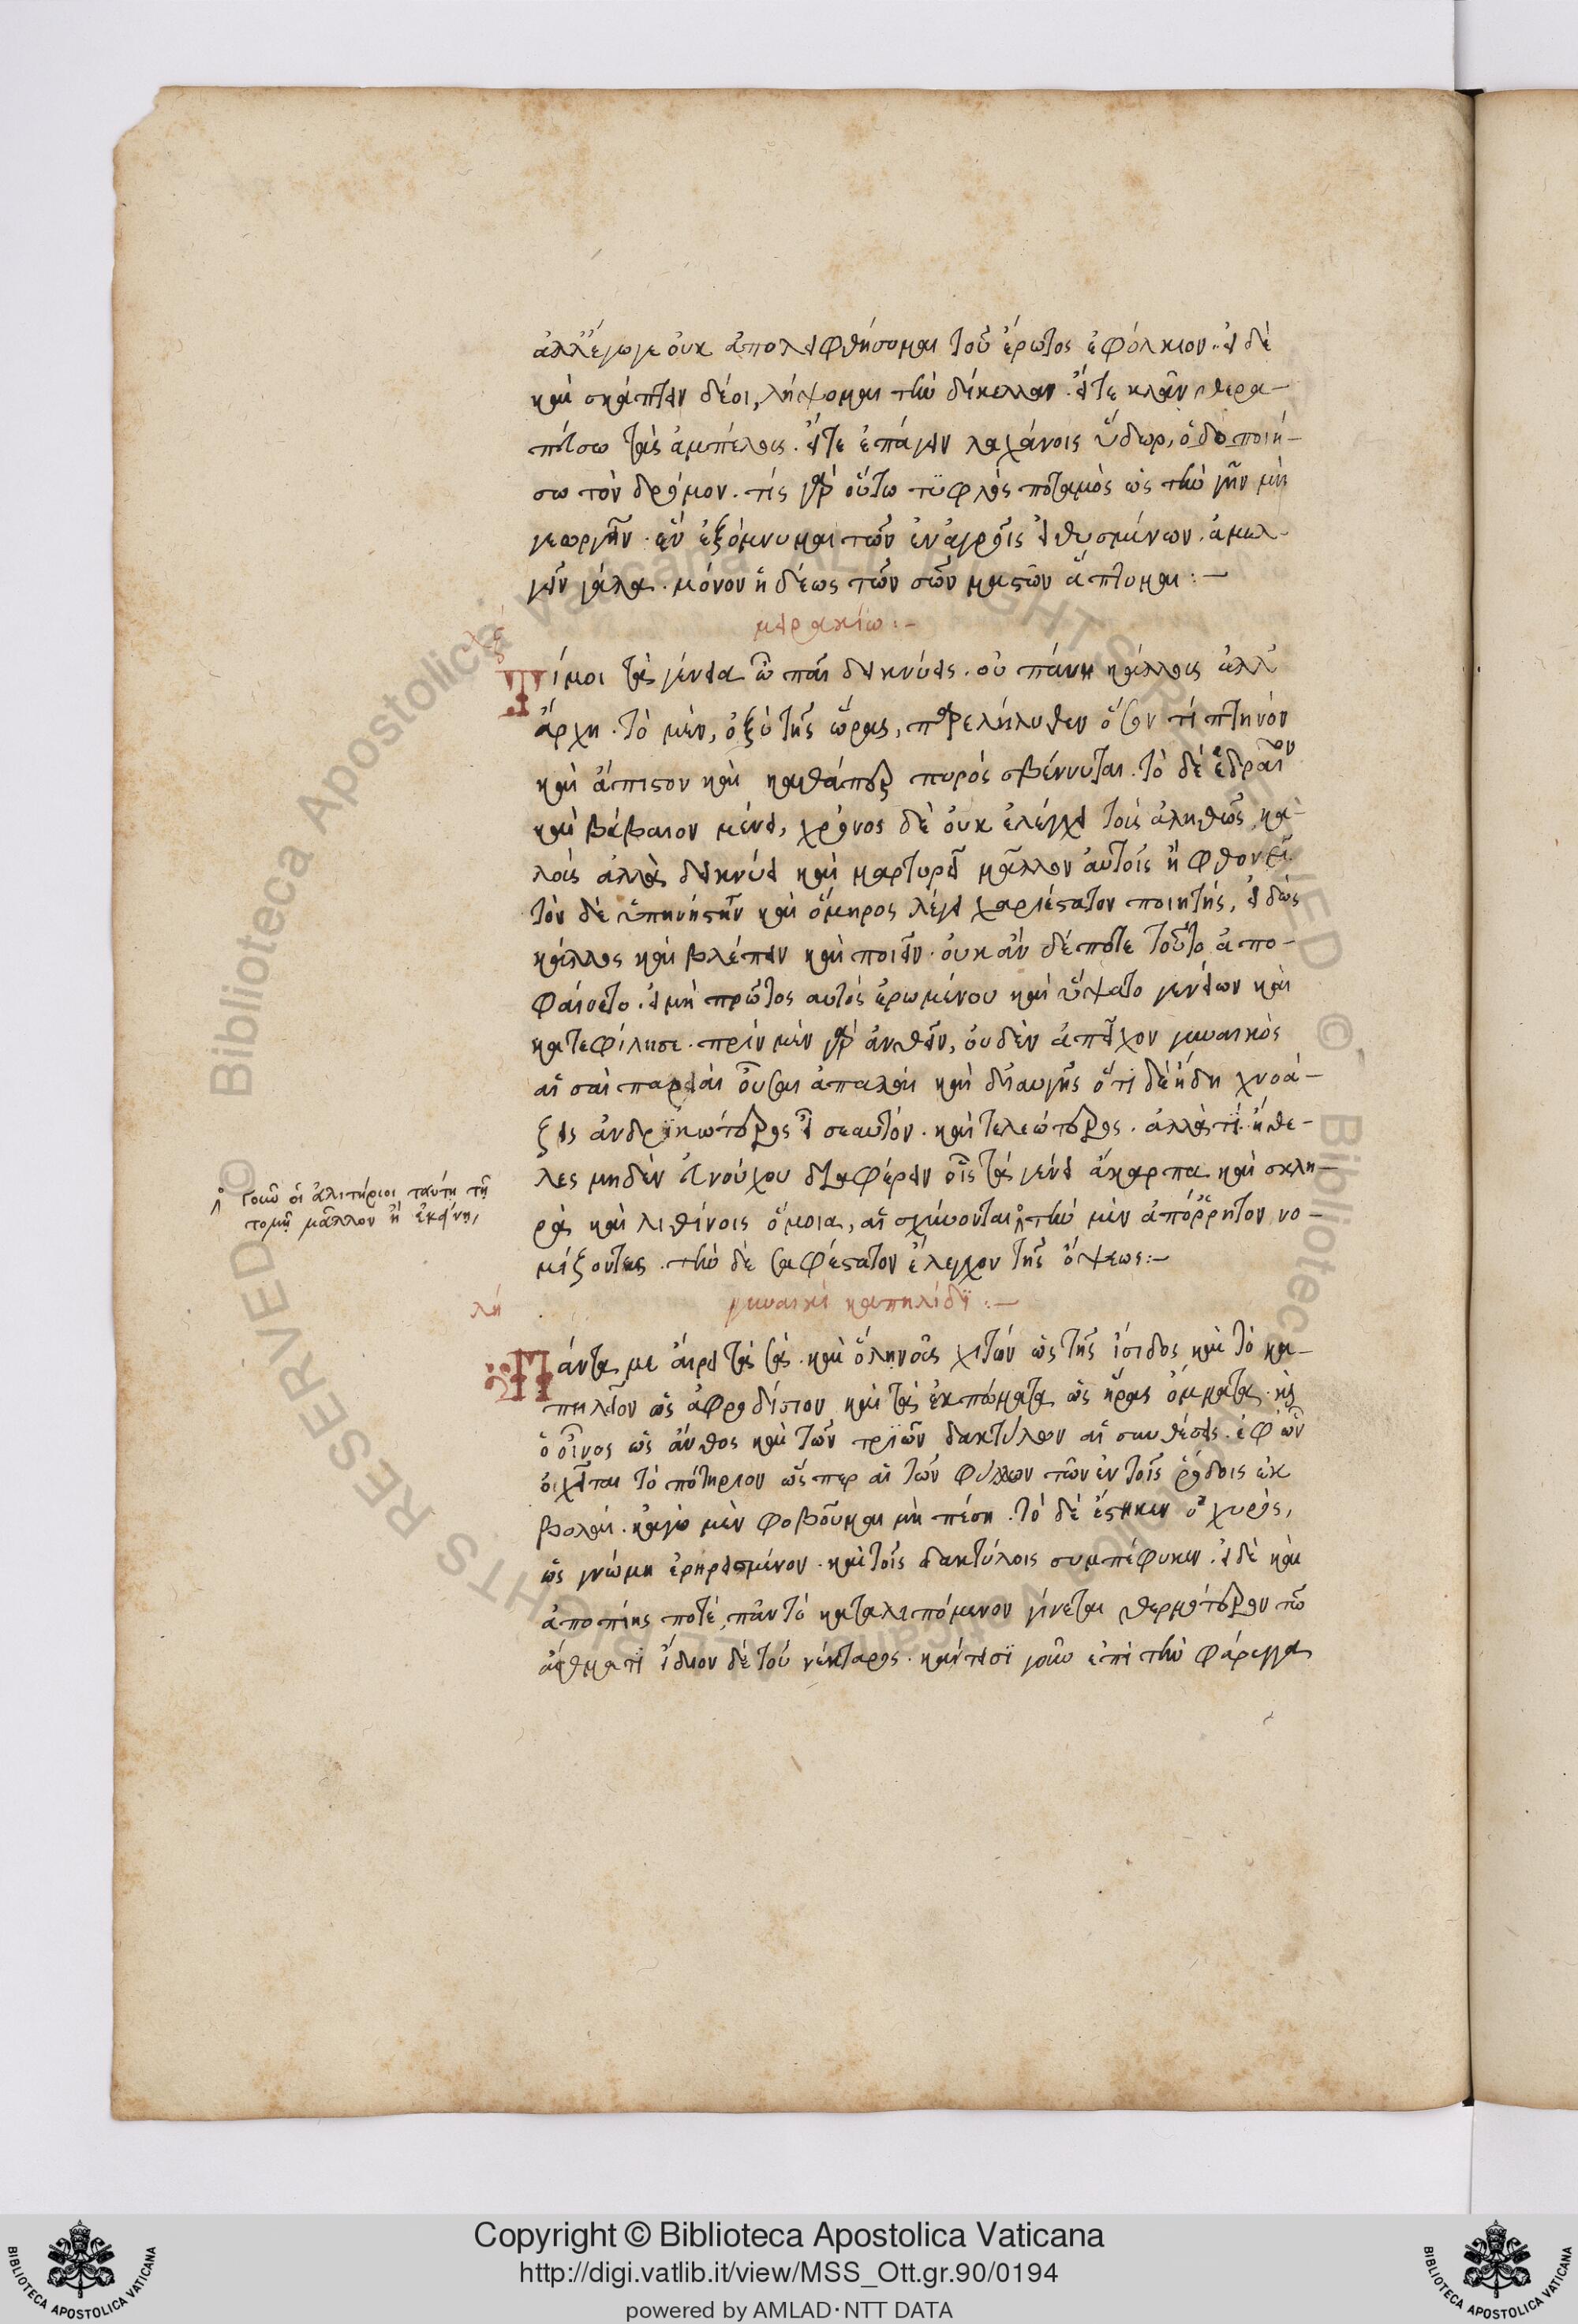 ἀλλ' ἔγωγε οὐκ ἀπολειφθήσομαι τοῦ ἔρωτος ἐφόλκιον. εἰ δὲ
καὶ σκάπτειν δέοι, λήψομαι τὴν δίκελλαν. εἴτε κλᾶν, θερα-
πεύσω τὰς ἀμπέλους. εἴτε ἐπάγειν λαχάνοις ὕδωρ, ὁδοποιή-
σω τὸν δρόμον. τίς γὰρ οὕτω τυφλὸς ποταμὸς ὡς τὴν γῆν μὴ
γεωργεῖν. ἓν ἐξόμνυμαι τῶν ἐν ἀγροῖς εἰθισμένων. ἀμελ-
γεῖν γάλα. μόνον ἡδέως τῶν σῶν μαστῶν ἅπτομαι:-
μειρακίῳ:-
Τί μοι τὰ γένεια ὦ παῖ δεικνύεις. οὐ παύῃ κάλλους ἀλλ'
ἄρχῃ. τὸ μὲν, ὀξὺ τῆς ὥρας, παρελήλυθεν ὅσον τι πτηνὸν
καὶ ἄπιστον καὶ καθάπερ πυρὸς σβέννυται. τὸ δὲ ἑδραῖον
καὶ βέβαιον μένει, χρόνος δὲ οὐκ ἐλέγχει τοὺς ἀληθῶς κα-
λοὺς ἀλλὰ δεικνύει καὶ μαρτυρεῖ μᾶλλον αὐτοῖς ἢ φθονεῖ.
τὸν δὲ ὑπηνήτην καὶ ὅμηρος λέγει χαριέστατον ποιητής, εἰδὼς
κάλλος καὶ βλέπειν καὶ ποιεῖν. οὐκ ἂν δέ ποτε τοῦτο ἀπε-
φαίνετο. εἰ μὴ πρῶτος αὐτὸς ἐρωμένου καὶ ἥψατο γενείων καὶ
κατεφίλησε. πρὶν μὲν γὰρ ἀνθεῖν, οὐδὲν ἀπεῖχον γυναικὸς
αἱ σαὶ παρειαὶ οὖσαι ἁπαλαὶ καὶ διαυγεῖς ὅτι δὲ ἤδη χνοά-
ζεις ἀνδρικώτερος εἶ σεαυτόν. καὶ τελεώτερος. ἀλλὰ τί. ἤθε-
λες μηδὲν εὐνούχου διαφέρειν οἷς τὰ γένεια ἄκαρπα καὶ σκλη-
ρὰ καὶ λιθίνοις ὅμοια, αἰσχύνονται τὴν μὲν ἀπόρρητον νο-
μίζοντες. τὴν δὲ σαφέστατον ἔλεγχον τῆς ὄψεως:-
γοῦν οἱ ἀλιτήριοι ταύτῃ τῇ
τομῇ μᾶλλον ἢ ἐκείνῃ,
λη
γυναικὶ καπηλίδι:-
Πάντα με αἱρεῖ τὰ σὰ. καὶ ὁ λινοῦς χιτὼν ὡς τῆς ἴσιδος καὶ τὸ κα-
πηλεῖον ὡς ἀφροδίσιον καὶ τὰ ἐκπώματα ὡς ἥρας ὄμματα. καὶ
ὁ οἶνος ὡς ἄνθος καὶ τῶν τριῶν δακτύλων αἱ συνθέσεις. ἐφ' ὧν
ὀχεῖται τὸ ποτήριον ὥσπερ αἱ τῶν φύλλων τῶν ἐν τοῖς ῥόδοις ἐκ
βολαί. κἀγὼ μὲν φοβοῦμαι μὴ πέσῃ. τὸ δὲ ἕστηκεν ὀχυρῶς,
ὡς γνώμῃ ἐρηρεισμένον. καὶ τοῖς δακτύλοις συμπέφυκεν. εἰ δὲ καὶ
ἀποπίῃς ποτέ, πᾶν τὸ καταλειπόμενον γίνεται θερμότερον τῷ
ἄσθματι ἥδιον δὲ τοῦ νέκταρος. κάτεισι γοῦν ἐπὶ τὴν φάρυγγα
Copyright © Biblioteca Apostolica Vaticana
http://digi.vatlib.it/view/MSS_Ott.gr.90/0194
powered by AMLAD·NTT DATA